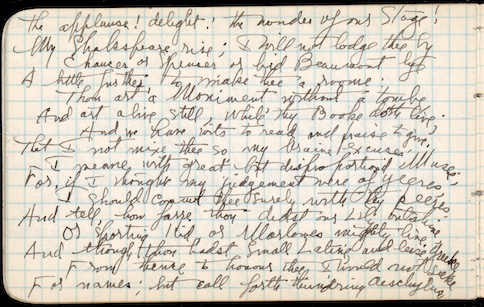 The applause! delight! the wonder of our Stage!
My Shakespeare, rise; I will not lodge thee by
Chaucer or Spenser or bid Beaumont lye
A little further, to make thee a roome:
Thou art a Moniment without a tombe
And art alive still while thy Booke doth live,
And we have wits to read and praise to give,
That I not mixe thee so my braine excuses,
I meane with great but disproportion'd Muses;
For, if I thought my judgement were of yeeres,
I should commit thee surely with thy peeres,
And tell how farre thou didst our Lily outshine
Or sporting Kid or Marlowes mighty line
And though thou hadst small Latine and lesse Greeke
From thence to honour thee I would not seeke
For names; but call forth thund'ring Aeschylus,